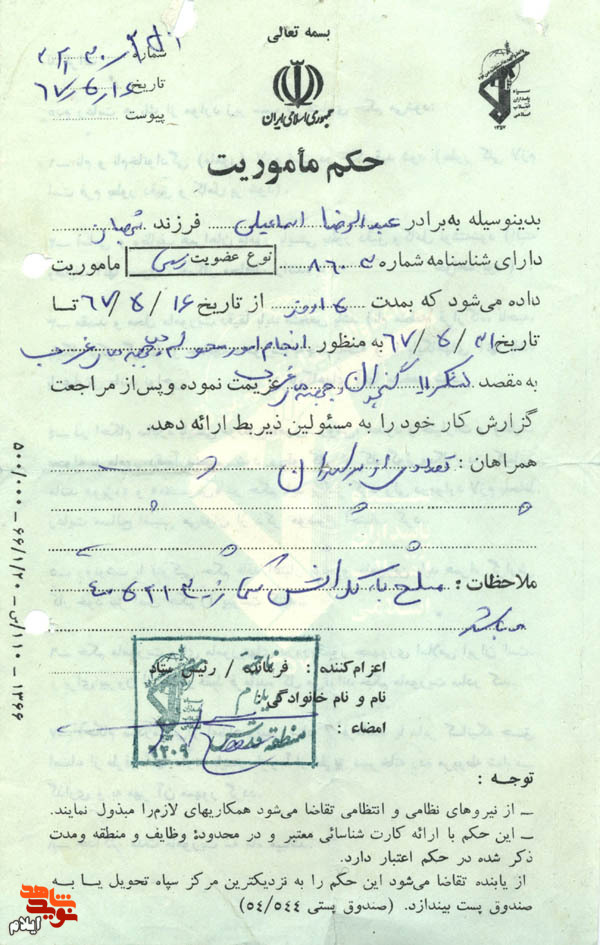 بسمه تعالی
شماره
تاریخ ۶۷/۵/۱۶
پیوست
جمهوری اسلامی ایران
سپاه پاسداران انقلاب اسلامی
حکم مأموریت
بدینوسیله به برادر عبدالرضا اسماعیلی فرزند شعبان
دارای شناسنامه شماره ۸۶۰۳ نوع عضویت رسمی ماموریت
داده می‌شود که بمدت روز از تاریخ ۶۷/۵/۱۶ تا
تاریخ ۶۷/۵/۳۱ به منظور انجام امور محوله جبهه های غرب
به مقصد لشکر ۱۱ جبهه های غرب عزیمت نموده و پس از مراجعت
گزارش کار خود را به مسئولین ذیربط ارائه دهد.
همراهان : تعدادی از برادران
ملاحظات : مسلح با
میباشد
اعزام‌کننده : فرمانده / رئیس ستاد
نام و نام خانوادگی
امضاء :
منطقه
توجه :
ــ از نیروهای نظامی و انتظامی تقاضا می‌شود همکاریهای لازم را مبذول نمایند.
ــ این حکم با ارائه کارت شناسائی معتبر و در محدودهٔ وظایف و منطقه ومدت
ذکر شده در حکم اعتبار دارد.
از یابنده تقاضا می‌شود این حکم را به نزدیکترین مرکز سپاه تحویل یـا بـه
صندوق پست بیندازد. (صندوق پستی ۵۴/۵۴۴)
۵۰۰/۰۰۰ ــ ۶۶/۱/۲۰ ــ ۱۱۰/ص ــ ۱۳۶۶
نوید شاهد
ایلام